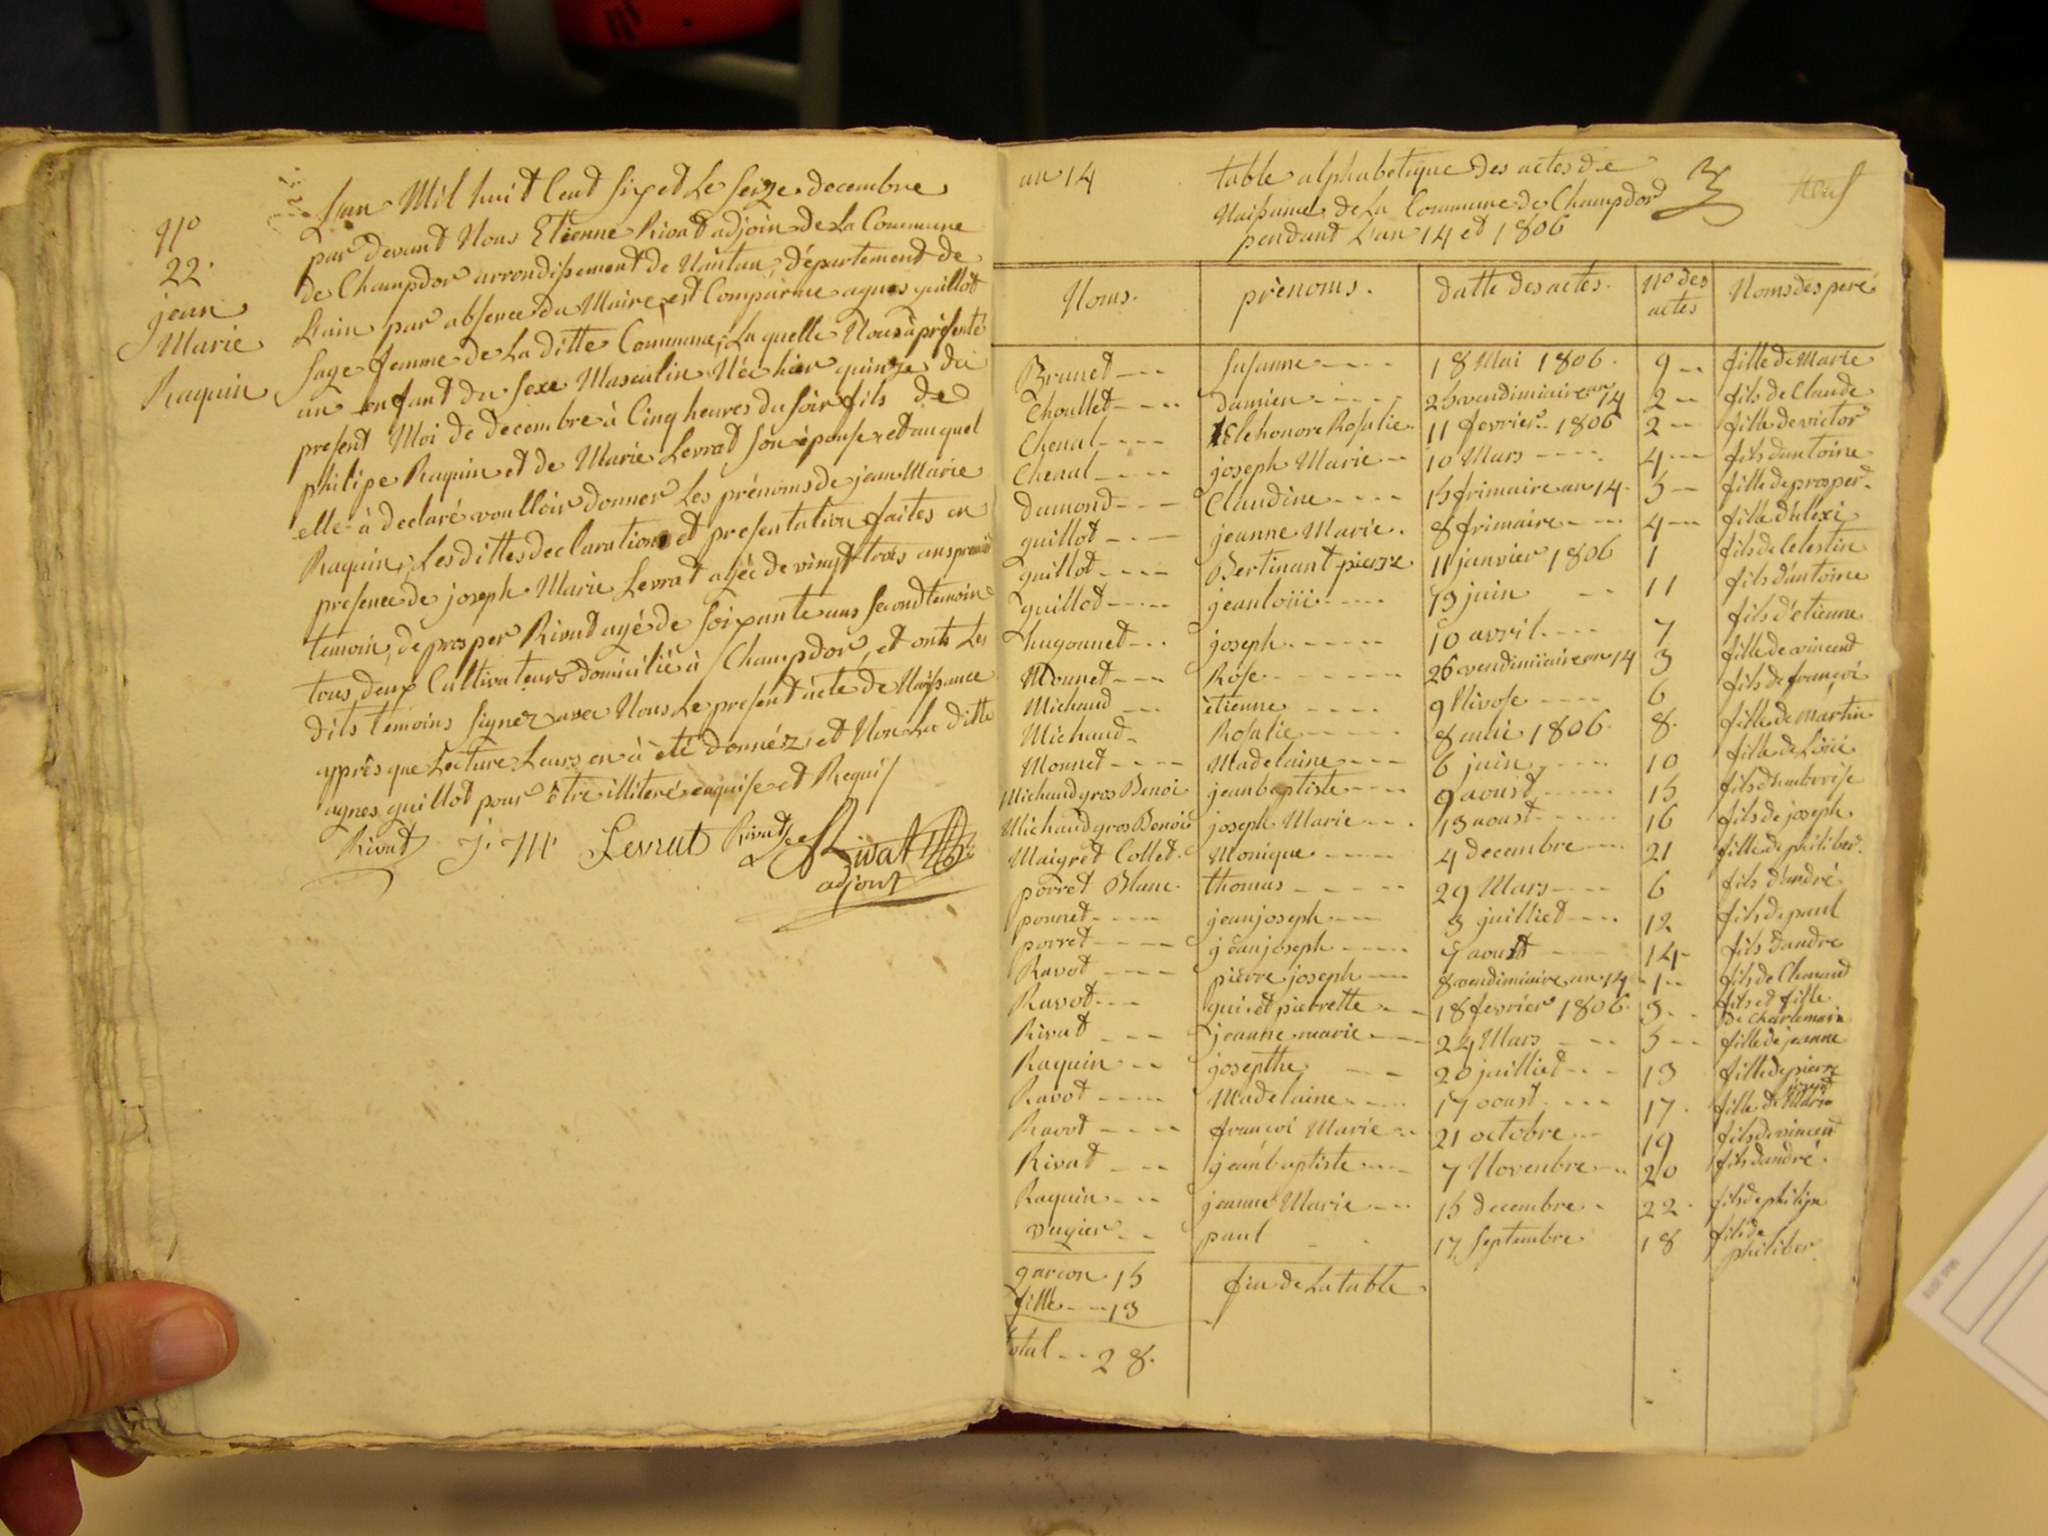 N°
22.
jean
Marie
Raquin
L'an Mil huit Cent Six et Le Seize decembre
par devant Nous Etienne Rivat adjoin de La Commune
de Champdor arrondissement de Nantua, département de
L'ain par absence du Maire, est Comparue agnes guillot
Sage femme de La ditte Commune, La quelle Nous à présenté
un enfant du Sexe Masculin Née hier quinze du
present Moi de decembre à Cinq heures du Soir fils de
philipe Raquin et de Marie Levrat Son épouse, et auquel
elle à declaré voulloir donner Les prénoms de jean Marie
Raquin, Les dittes declaration et presentation faites en
presence de joseph Marie Levrat agée de vingt trois ans premié
temoin, de prosper Rivat agé de Soixante ans Second temoin
tous deux Cultivateurs domicilié à Champdor, et onts Les
dits temoins Signez avec Nous Le present acte de Naissance
apprês que Lecture Leurs en à été donnéz, et Non La ditte
agnes guillot pour être illiteré enquise et Requis
Rivat J. M Levrat Rivat
adjoint
an 14
table alphabetique des actes de
Naissance de La Commune de Champdor
pendant L'an 14 et 1806
Noms. prénoms. datte des actes. N° des actes Noms des peré
Brunet Susanne 18 Mai 1806. 9 fille de Marie
Choullet damien 25 vendimiaire an 14 2 fils de Claude
Chenal Elehonore Rosalie 11 fevrier 1806 2 fille de victor
Chenal joseph Marie 10 Mars 4 fils dantoine
dumond Claudine 15 frimaire an 14. 5 fille de prosper
guillot jeanne Marie 8 frimaire 4 fille d'alexi
guillot Bertinant pierre 11 janvier 1806 1 fils de Celestin
guillot jean loüi 13 juin 11 fils d'antoine
hugonnet joseph 10 avril 7 fils d'etienne
Monnet Rose 26 vendimiaire an 14 3 fille de vincent
Michaud etienne 9 Nivose 6 fils de françoi
Michaud Rosalie 8 mai 1806. 8. fille de Martin
Monnet Madelaine 6 juin 10 fille de Loüi
Michaud gros Benoi jean baptiste 9 aoust 15 fils d'ambroise
Michaud gros Benoi joseph Marie 13 aoust 16 fils de joseph
Maigret Collet Monique 4 decembre 21 fille de philiber
porret Blanc thomas 29 Mars 6 fils d'andré
ponnet jean joseph 3 juilliet 12 fils de paul
porret jean joseph 7 aoust 14 fils dandre
Ravot pierre joseph 8 vendimiaire an 14 1
Ravot gui et pierrette 18 fevrier 1806. 3 fils et fille de charlemain
Rivat jeanne marie 24 Mars 5 fille de jeanne
Raquin josepthe 20 juilliet 13 fille de pierre
Ravot Madelaine 17 aoust 17. fille de joseph Marie
Ravot françoi Marie 21 octobre 19 fils de vincent
Rivat jean baptiste 7 Novenbre 20 fils dandré
Raquin jeanne Marie 15 decembre 22. fils de philipe
vugier paul 17 Septembre 18 fils de philiber
garcon 15
fille 13
total 28.
fin de La table